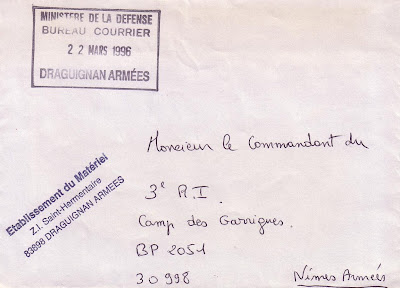 MINISTERE DE LA DEFENSE
BUREAU COURRIER
2 2 MARS 1996
DRAGUIGNAN ARMÉES
Monsieur le Commandant du
3e R.I.
Camp des Garrigues.
BP 2051
30998
Nîmes Armées
Etablissement du Matériel
Z.I. Saint-Hermentaire
83698 DRAGUIGNAN ARMEES